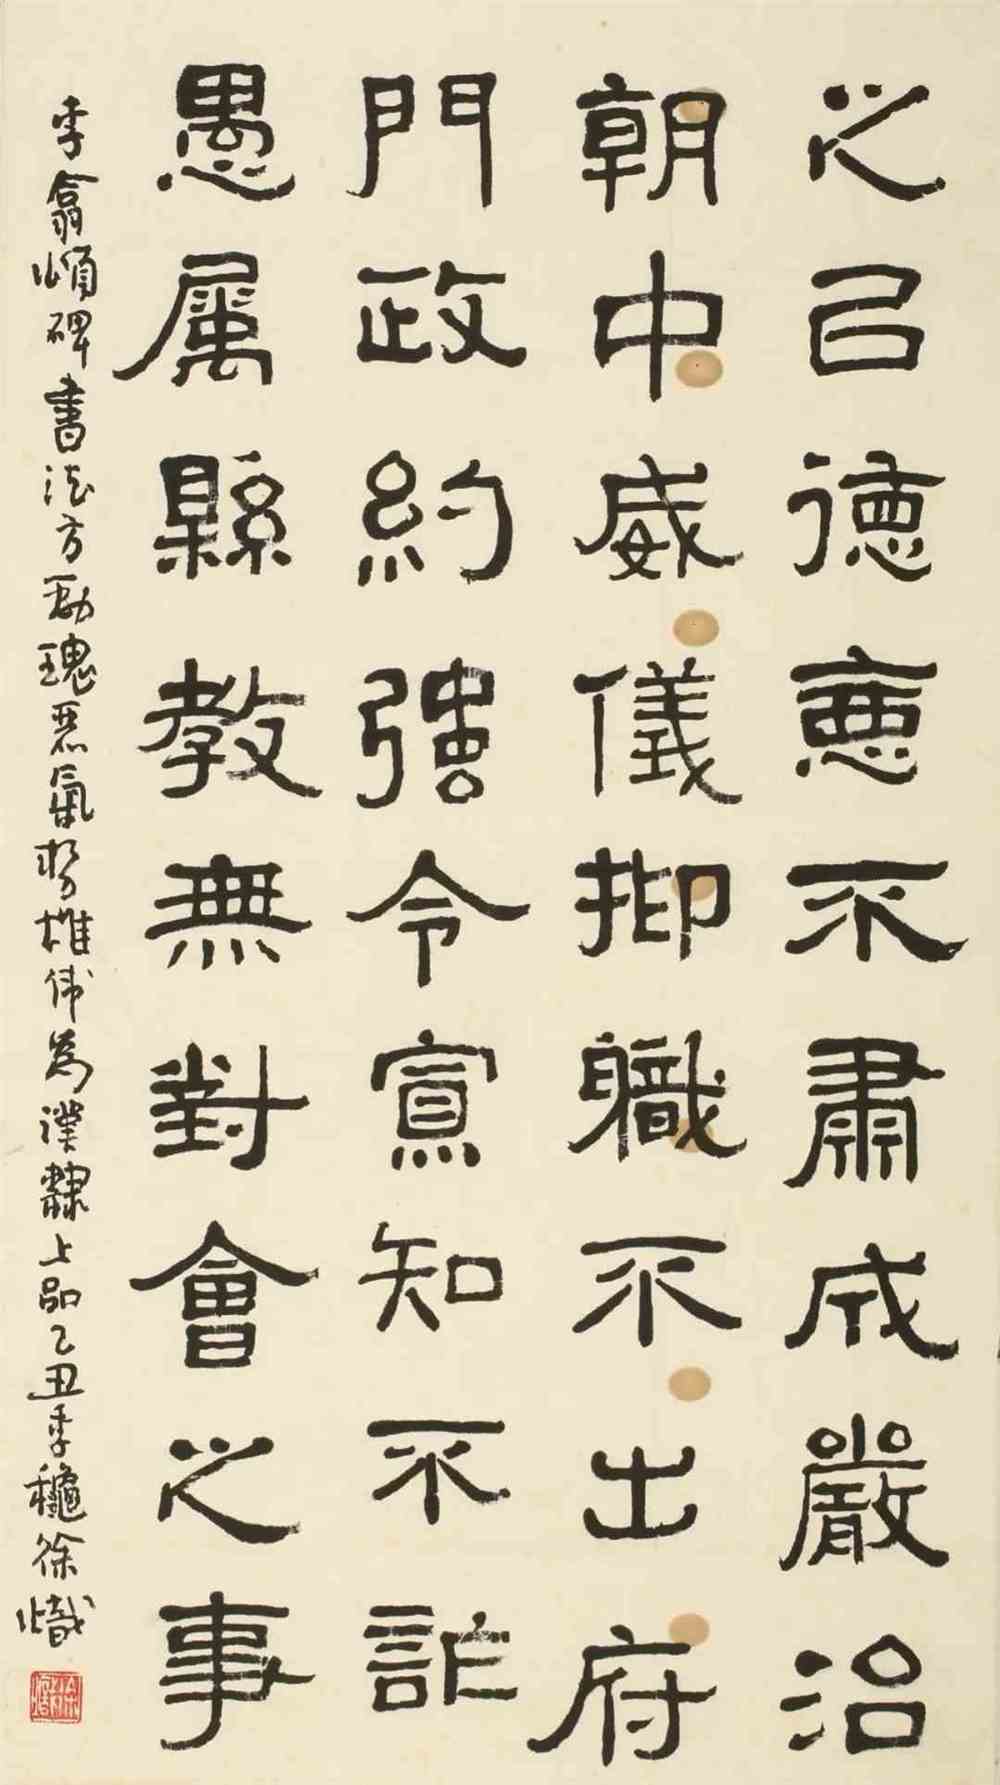 之㠯德惠不肅成嚴治
朝中威儀抑職不出府
門政約強令寡知不詐
愚属縣教無對會之事
李翕頌碑書法方勁瑰氣勢雄偉為漢隸上品乙丑季穐徐